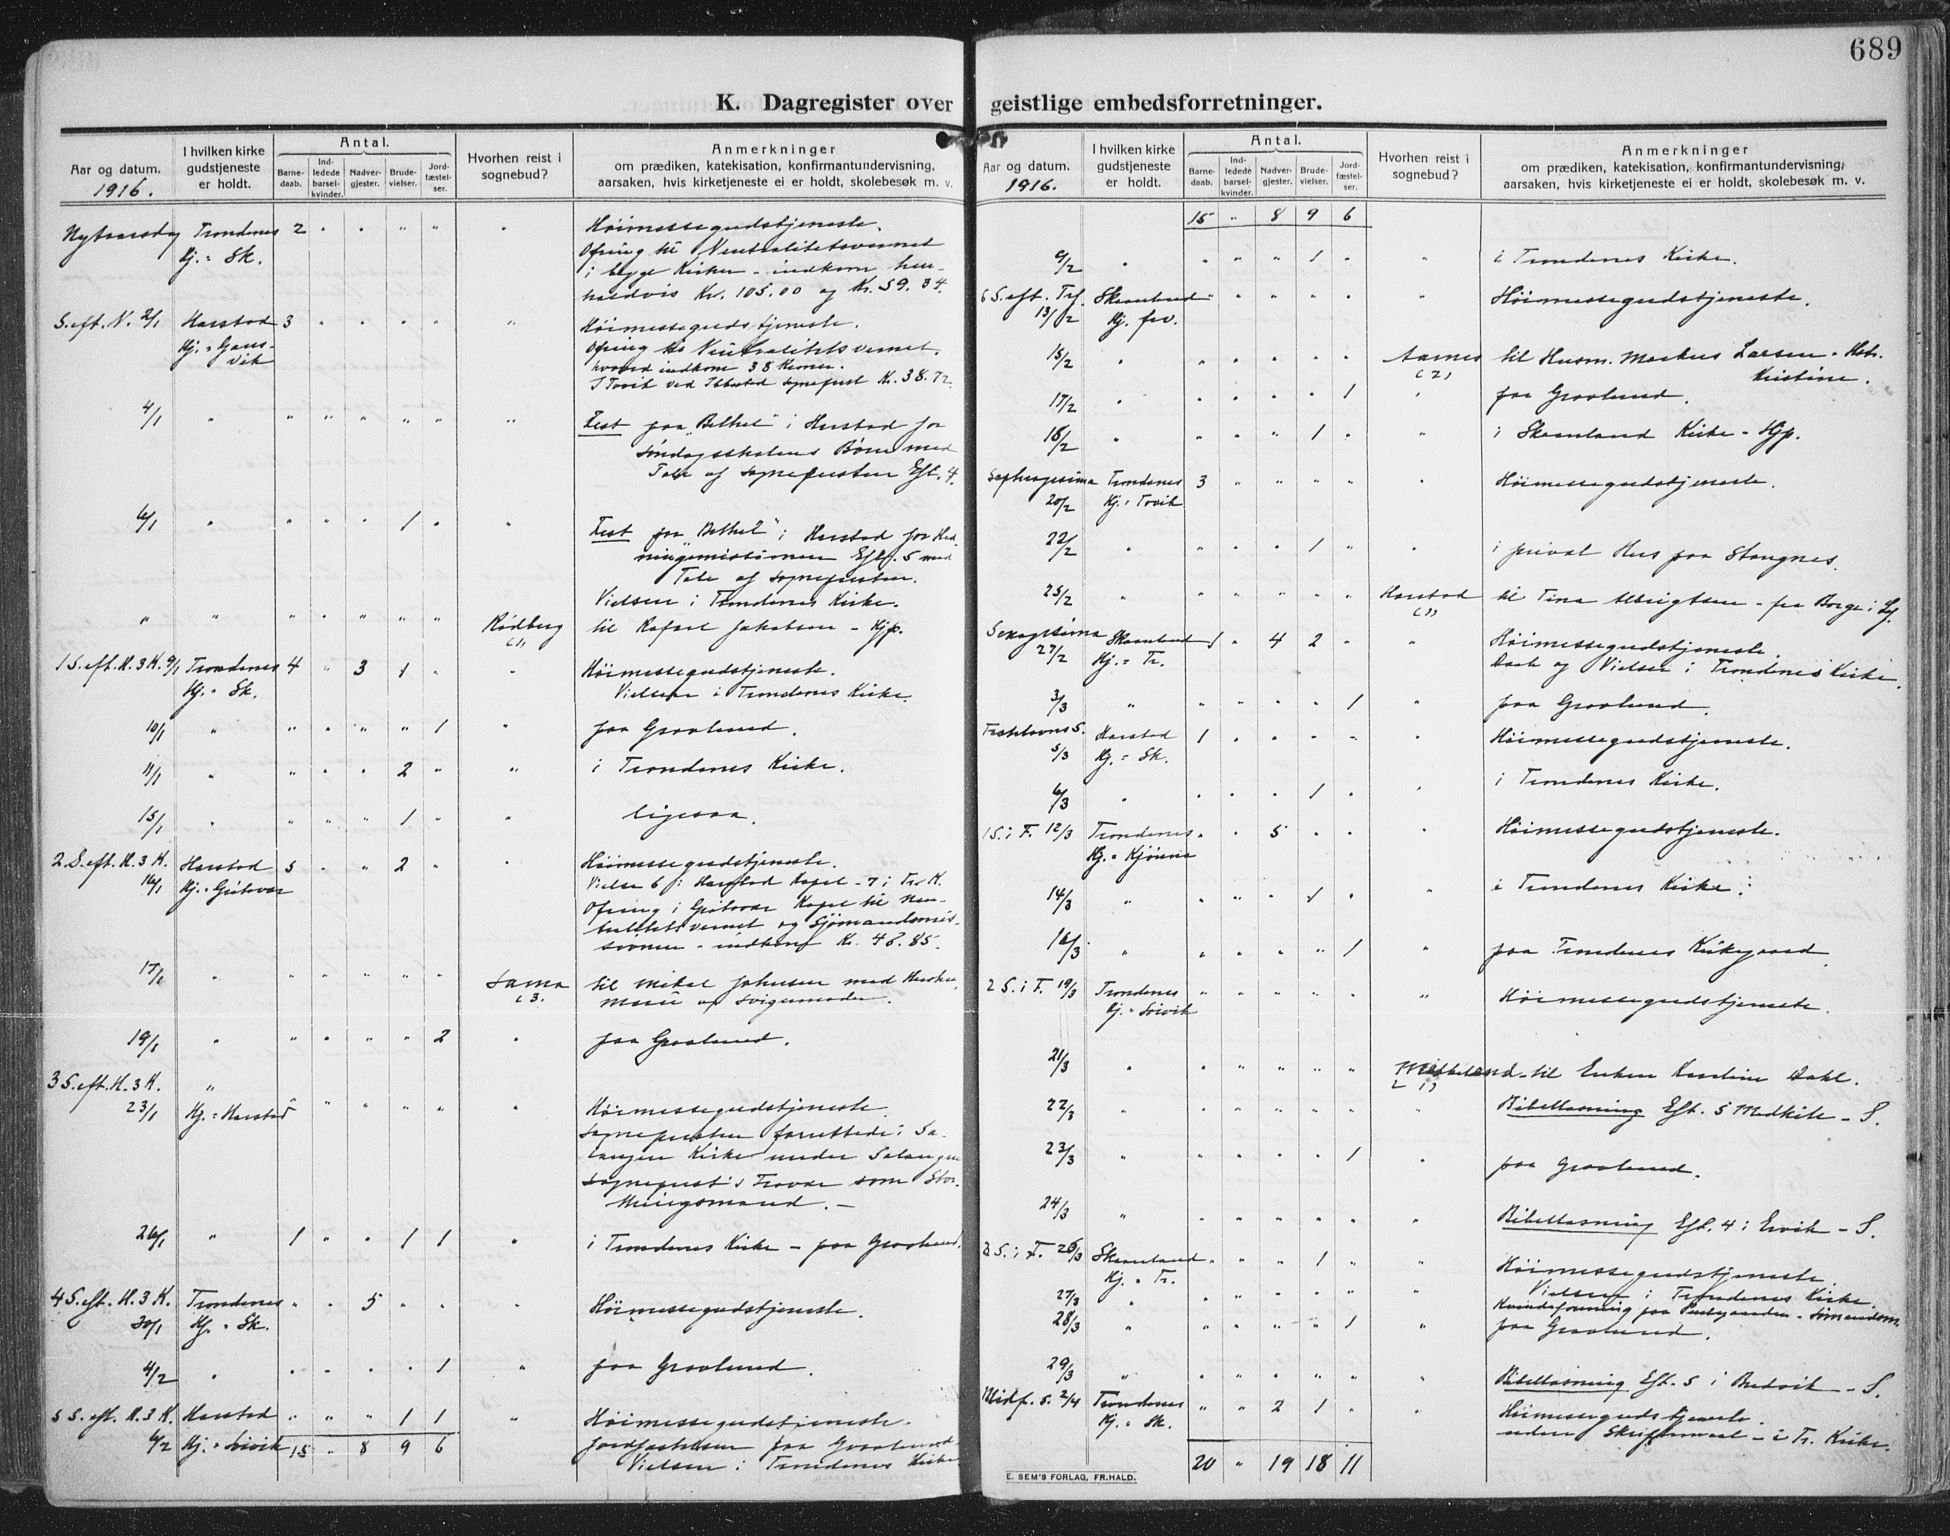 689
K. Dagregister over geistlige embedsforretninger.
Aar og datum.
1916.
I hvilken kirke
gudstjeneste
er holdt.
Antal.
Barne-
daab.
Ind-
ledede
barsel-
kvinder.
Nadver-
gjester.
Brude-
vielser.
Jord-
fæstel-
ser.
Hvorhen reist i
sognebud?
Anmerkninger
om prædiken, katekisation, konfirmantundervisning,
aarsaken, hvis kirketjeneste ei er holdt, skolebesøk m. v.
Nytaarsdag Trondenes 2 " " " " " Høimessegudstjeneste.
Kj. = Sk. Ofring til Neutralitetsvernet
i begge Kirker - indkom hen-
holdvis Kr. 105.00 og Kr. 59.34.
S. eft. N. 2/1 Harstad 3 " " " " " Høimessegudstjeneste.
Kj. = Gans- Ofring til Neutralitetsvernet,
vik hvorved indkom 38 Kroner.
I Tovik ved Ibbestad sogneprest Kr. 38.72.
4/1 " " " " " " " Fest paa "Bethel" i Harstad for
Søndagsskolens Børn med
Tale af sognepresten Eft. 4.
6/1 " " " " 1 " " Fest paa "Bethel" i Harstad for Hed-
ningemissionen Eft. 5 med
Tale af sognepresten.
Vielsen i Trondenes Kirke.
" " " " " " " Rødberg til Rafael Jakobsen - Hjp.
(1)
1 S. eft. H. 3 K. 9/1 Trondenes 4 " 3 1 " " Høimessegudstjeneste.
Kj. = Sk. Vielsen i Trondenes Kirke.
10/1 " " " " " 1 " paa Gravlund.
11/1 " " " " 2 " " i Trondenes Kirke.
15/1 " " " " 1 " " ligesaa.
2 S. eft. H. 3 K. Harstad 5 " " 2 " " Høimessegudstjeneste.
16/1 Kj. = Grøtavær Vielse 6 i Harstad Kapel - 7 i Tr. K.
Ofring i Grøtavær Kapel til Neu-
tralitetsvernet og Sjømandsmis-
sionen - indkom Kr. 48.85.
17/1 " " " " " " Sama til Mikal Johnsen med Hustru
(3. Marie og Svigermoder.
19/1 " " " " " 2 " paa Gravlund.
3 S. eft. H. 3 K. "
23/1 Kj. = Harstad " " " " " " Høimessegudstjeneste.
Sognepresten forrettede i Sa-
langen Kirke under Salangen
Sogneprests Fravær som Stor-
thingsmand. -
26/1 " 1 " " 1 1 " i Trondenes Kirke - paa Gravlund.
4 S. eft. H. 3 K. Trondenes " " 5 " " " Høimessegudstjeneste.
30/1 Kj. = Sk.
4/2 " " " " " 1 " paa Gravlund.
5 S. eft. H. 3 K. Harstad " " " 1 1 " Høimessegudstjeneste.
6/2 Kj. = Sørvik 15 " 8 9 6 Jordfæstelsen paa Gravlund -
Vielsen i Trondenes Kirke
Aar og datum.
1916.
I hvilken kirke
gudstjeneste
er holdt.
Antal.
Barne-
daab.
Ind-
ledede
barsel-
kvinder.
Nadver-
gjester.
Brude-
vielser.
Jord-
fæstel-
ser.
Hvorhen reist i
sognebud?
Anmerkninger
om prædiken, katekisation, konfirmantundervisning,
aarsaken, hvis kirketjeneste ei er holdt, skolebesøk m. v.
15 " 8 9 6
9/2 " " " " 1 " " i Trondenes Kirke.
6 S. eft. Trf. Skaanland " " " " " " Høimessegudstjeneste.
13/2 Kj. frv.
15/2 " " " " " " Aarnes til Husm. Markus Larsen - Hstr.
(2) Kristine.
17/2 " " " " " 1 " paa Gravlund.
18/2 " " " " 1 " " i Skaanland Kirke - Hjp.
Septuagesima Trondenes 3 " " " " " Høimessegudstjeneste.
20/2 Kj. = Tovik
22/2 " " " " 1 " " i privat Hus paa Stangnes.
25/2 " " " " " " Harstad til Tina Ulrigtsen - fra Borge i Lof.
(1)
Sexagesima Skaanland 1 " 4 2 " " Høimessegudstjeneste.
27/2 Kj. = Tr. Daab og Vielser i Trondenes Kirke.
3/3 " " " " " 1 " paa Gravlund.
Fastelavns S. Harstad 1 " " " " " Høimessegudstjeneste.
5/3 Kj. = Sk.
6/3 " " " " 1 " " i Trondenes Kirke.
1 S. i F. 12/3 Trondenes " " 5 " " " Høimessegudstjeneste.
Kj. = Kjønna
14/3 " " " " 1 " " i Trondenes Kirke.
16/3 " " " " " 1 " paa Trondenes Kirkegaard.
2 S. i F. 19/3 Trondenes " " " " " " Høimessegudstjeneste.
Kj. = Sørvik
21/3 " " " " " " til Enken Karoline Dahl.
22/3 " " " " " " " Bibellæsning Eft. 5 Medkile - S.
23/3 " " " " " 1 " paa Gravlund.
24/3 " " " " " " " Bibellæsning Eft. 4 i Ervik - S.
3 S. i F. 26/3 Skaanland " " " 1 " " Høimessegudstjeneste.
Kj. = Tr. Vielsen i Trondenes Kirke.
27/3 " " " " " " " Kvindeforening paa Prestegaarden - Sømandsm.
28/3 " " " " " 1 " paa Gravlund.
29/3 " " " " " " " Bibellæsning Eft. 5 i Bredvik - S.
Midf. S. 2/4 Trondenes " " 2 1 " " Høimessegudstjeneste.
Kj. = Sk. uden Skriftemaal - i Tr. Kirke.
20 " 19 18 11
E. SEM'S FORLAG, FR.HALD.